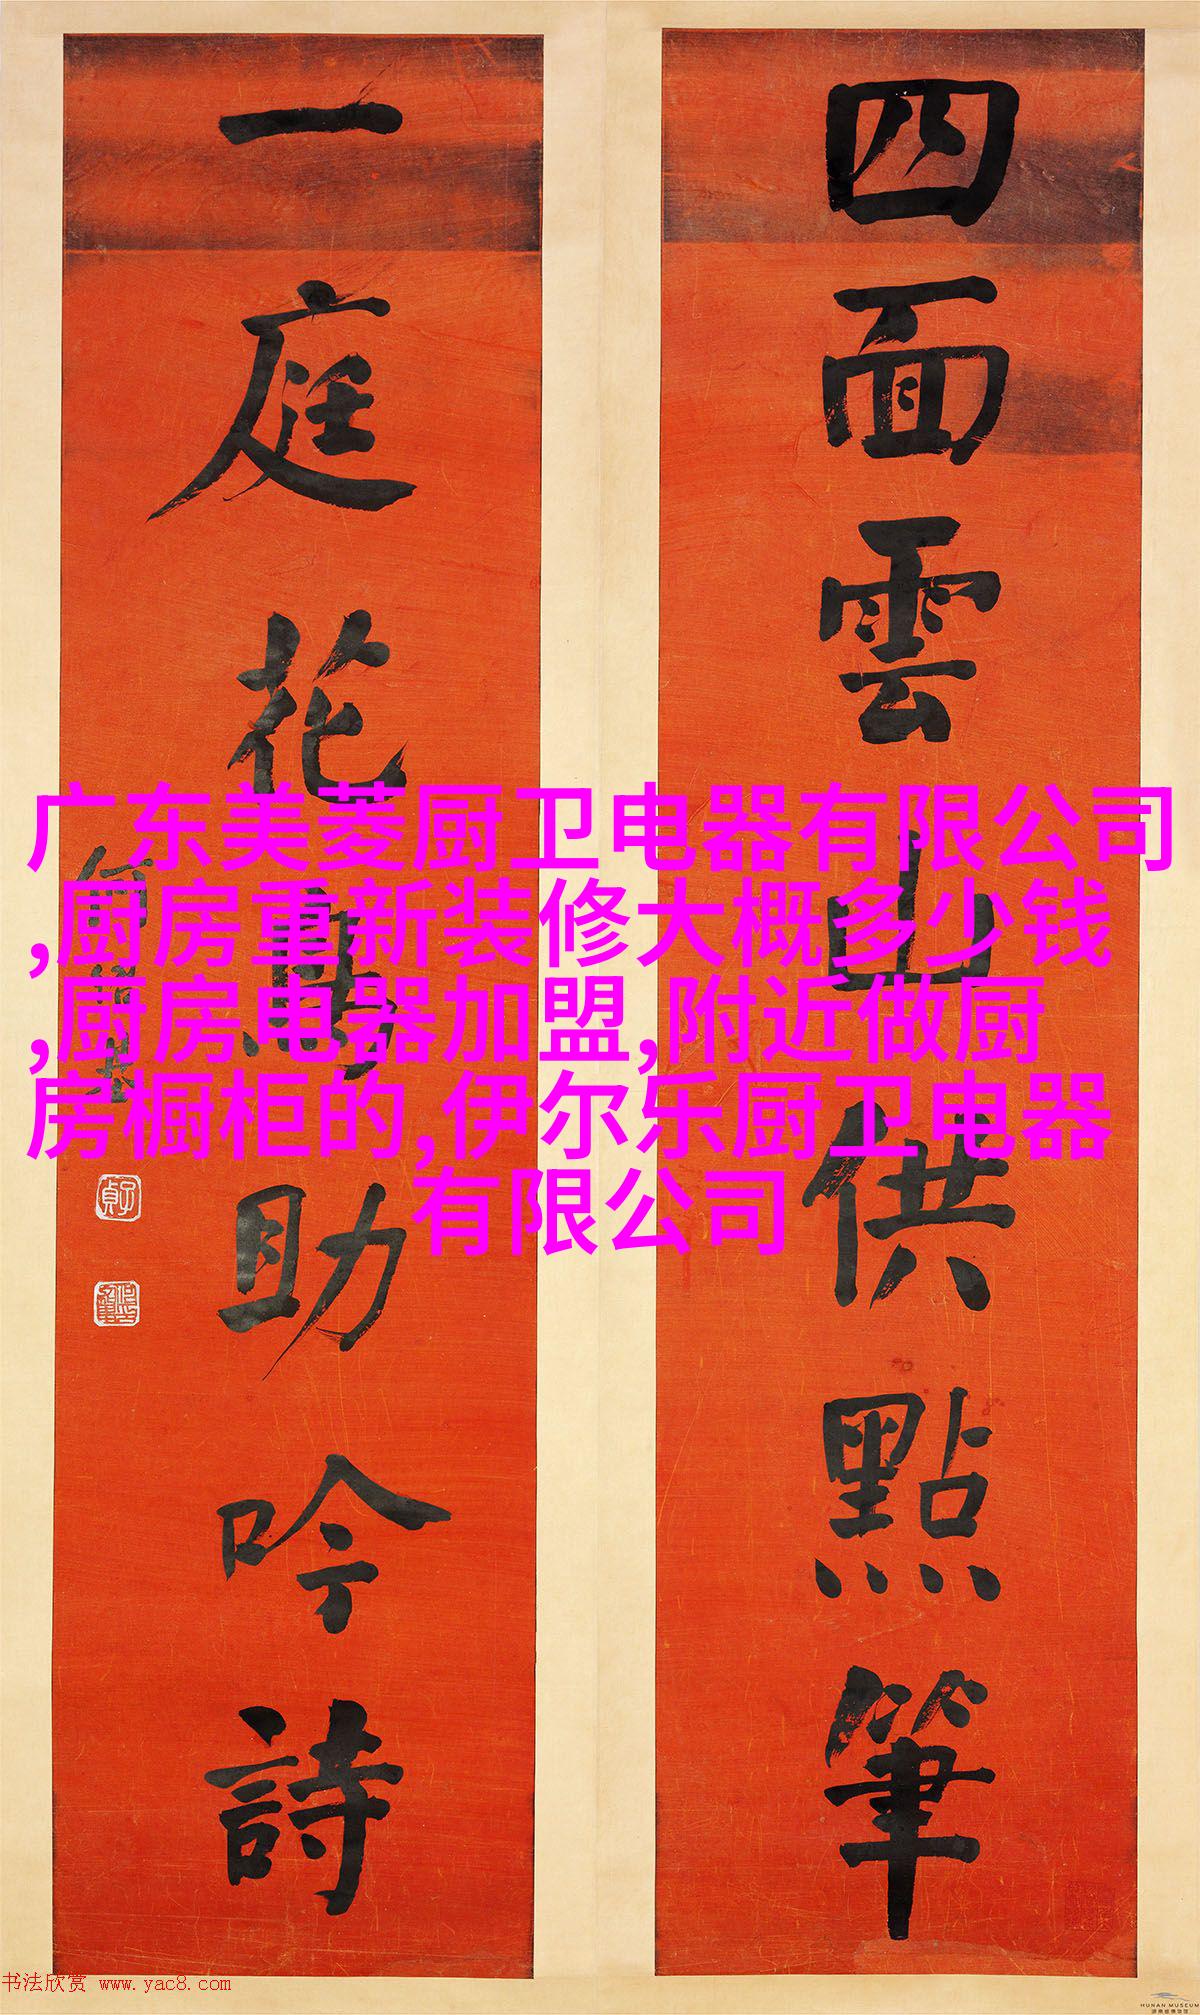 四面雲山供點筆
一庭花鳥助吟詩
何紹基
子貞
广东美菱厨卫电器有限公司
,厨房重新装修大概多少钱
,厨房电器加盟,附近做厨
房橱柜的,伊尔乐厨卫电器
有限公司
书法欣赏 www.yac8.com
HUNAN MUSEUM